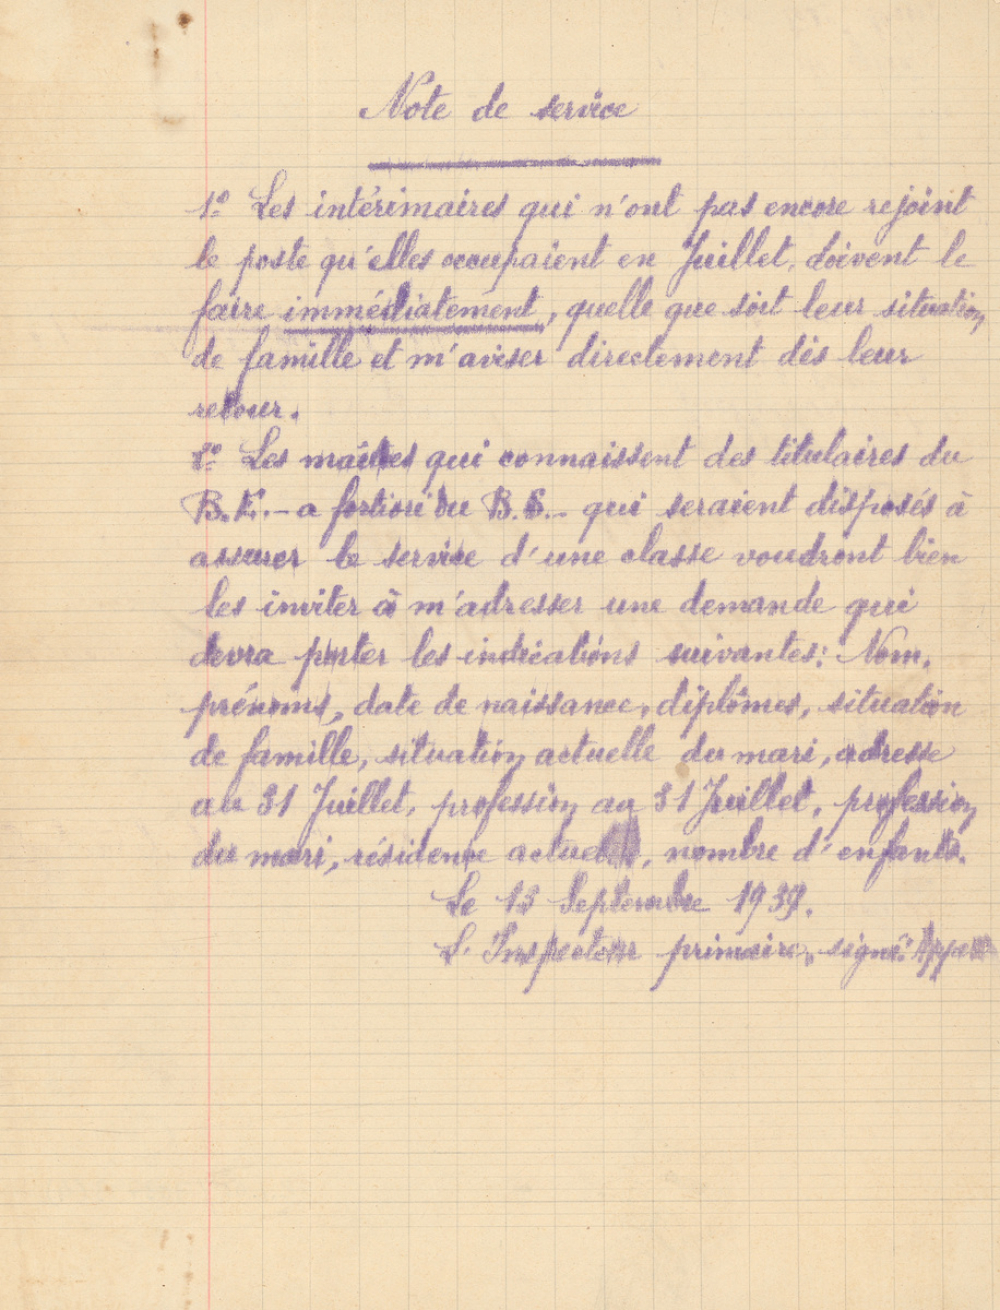 Note de service
1º Les intérimaires qui n'ont pas encore rejoint
le poste qu'elles occupaient en Juillet, doivent le
faire immédiatement, quelle que soit leur situation
de famille et m'aviser directement dès leur
retour.
2º Les maîtres qui connaissent des titulaires du
B.E. - a fortiori du B.S. - qui seraient disposés à
assurer le service d'une classe voudront bien
les inviter à m'adresser une demande qui
devra porter les indications suivantes: Nom,
prénoms, date de naissance, diplômes, situation
de famille, situation actuelle du mari, adresse
au 31 Juillet, profession au 31 Juillet, profession
du mari, résidence actuelle, nombre d'enfants.
Le 13 Septembre 1939.
L'Inspecteur primaire, signé: